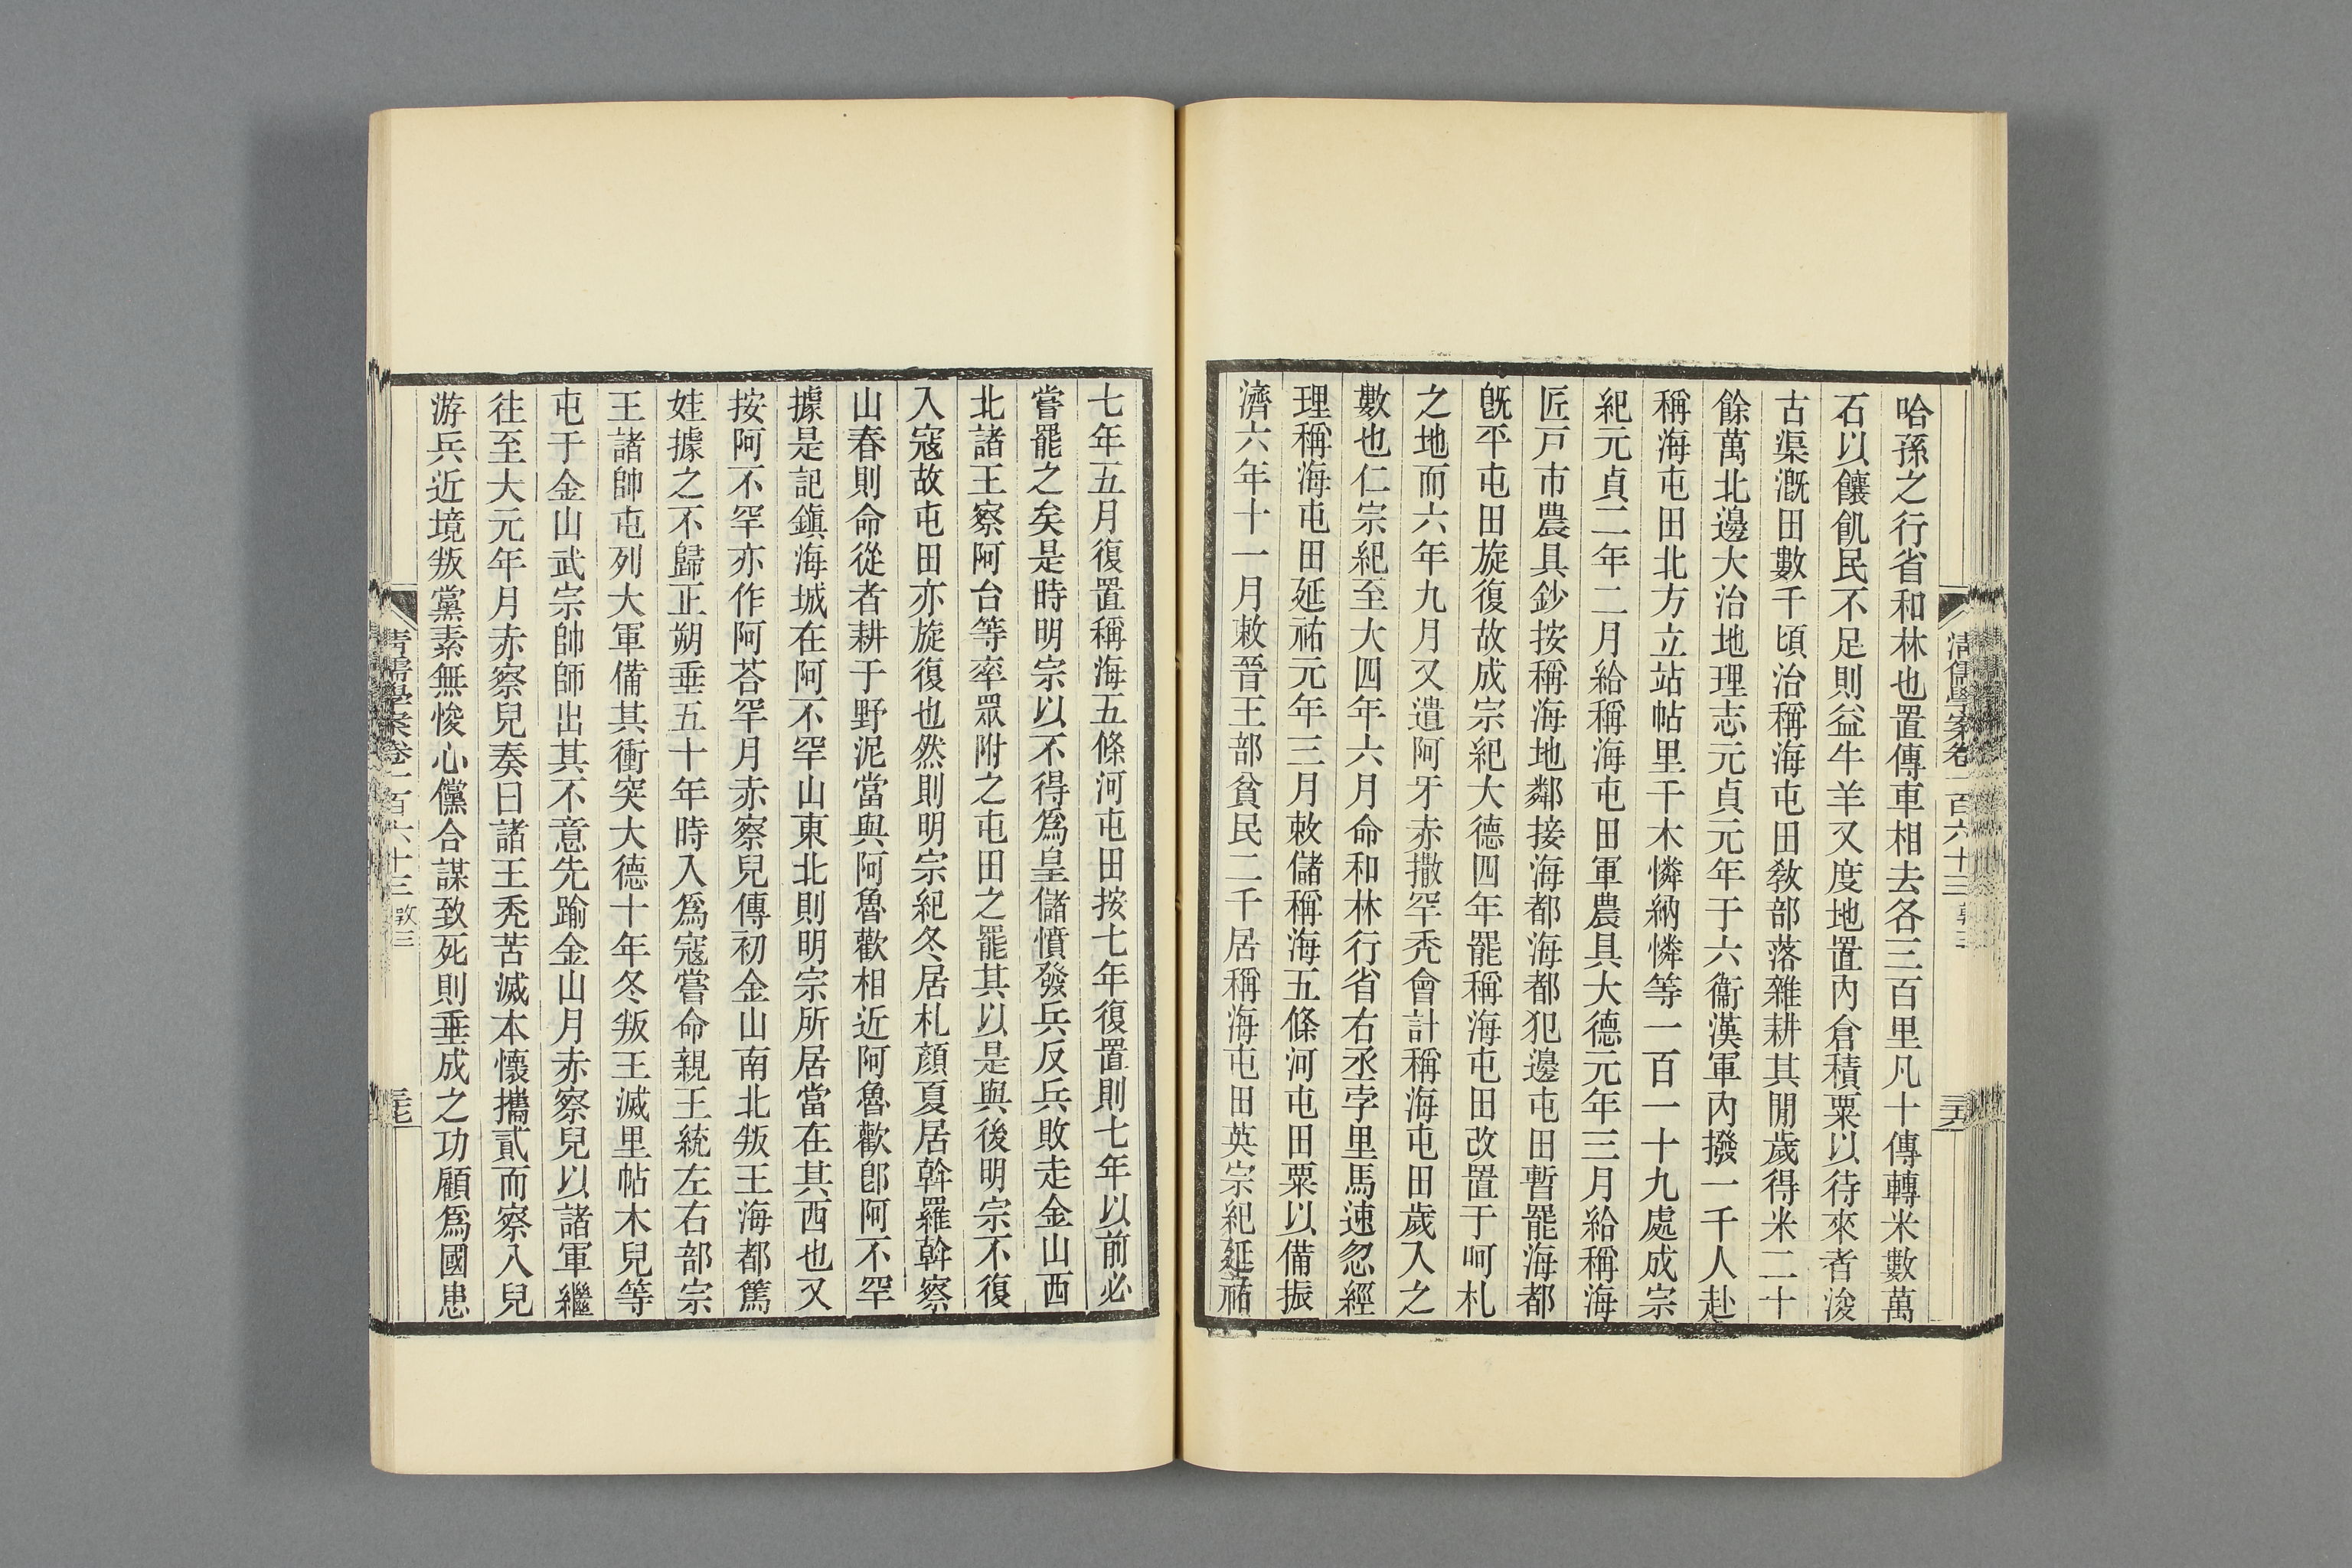 哈孫之行省和林也置傳車相去各三百里凡十傳轉米數萬
石以饟飢民不足則益牛羊又度地置內倉積粟以待來者浚
古渠漑田數千頃治稱海屯田敎部落雜耕其閒歲得米二十
餘萬北邊大治地理志元貞元年于六衞漢軍內撥一千人赴
稱海屯田北方立站帖里干木憐納憐等一百一十九處成宗
紀元貞二年二月給稱海屯田軍農具大德元年三月給稱海
匠戸市農具鈔按稱海地鄰接海都海都犯邊屯田暫罷海都
旣平屯田旋復故成宗紀大德四年罷稱海屯田改置于呵札
之地而六年九月又遣阿牙赤撒罕禿會計稱海屯田歲入之
數也仁宗紀至大四年六月命和林行省右丞孛里馬速忽經
理稱海屯田延祐元年三月敕儲稱海五條河屯田粟以備振
濟六年十一月敕晉王部貧民二千居稱海屯田英宗紀延祐
七年五月復置稱海五條河屯田按七年復置則七年以前必
嘗罷之矣是時明宗以不得爲皇儲憤發兵反兵敗走金山西
北諸王察阿台等率眾附之屯田之罷其以是與後明宗不復
入寇故屯田亦旋復也然則明宗紀冬居札顏夏居斡羅斡察
山春則命從者耕于野泥當與阿魯歡相近阿魯歡卽阿不罕
據是記鎭海城在阿不罕山東北則明宗所居當在其西也又
按阿不罕亦作阿荅罕月赤察兒傳初金山南北叛王海都篤
娃據之不歸正朔垂五十年時入爲寇嘗命親王統左右部宗
王諸帥屯列大軍備其衝突大德十年冬叛王滅里帖木兒等
屯于金山武宗帥師出其不意先踰金山月赤察兒以諸軍繼
往至大元年月赤察兒奏曰諸王禿苦滅本懷攜貳而察八兒
游兵近境叛黨素無悛心儻合謀致死則垂成之功顧爲國患
清儒學案卷一百六十三
清儒學案卷一百六十三